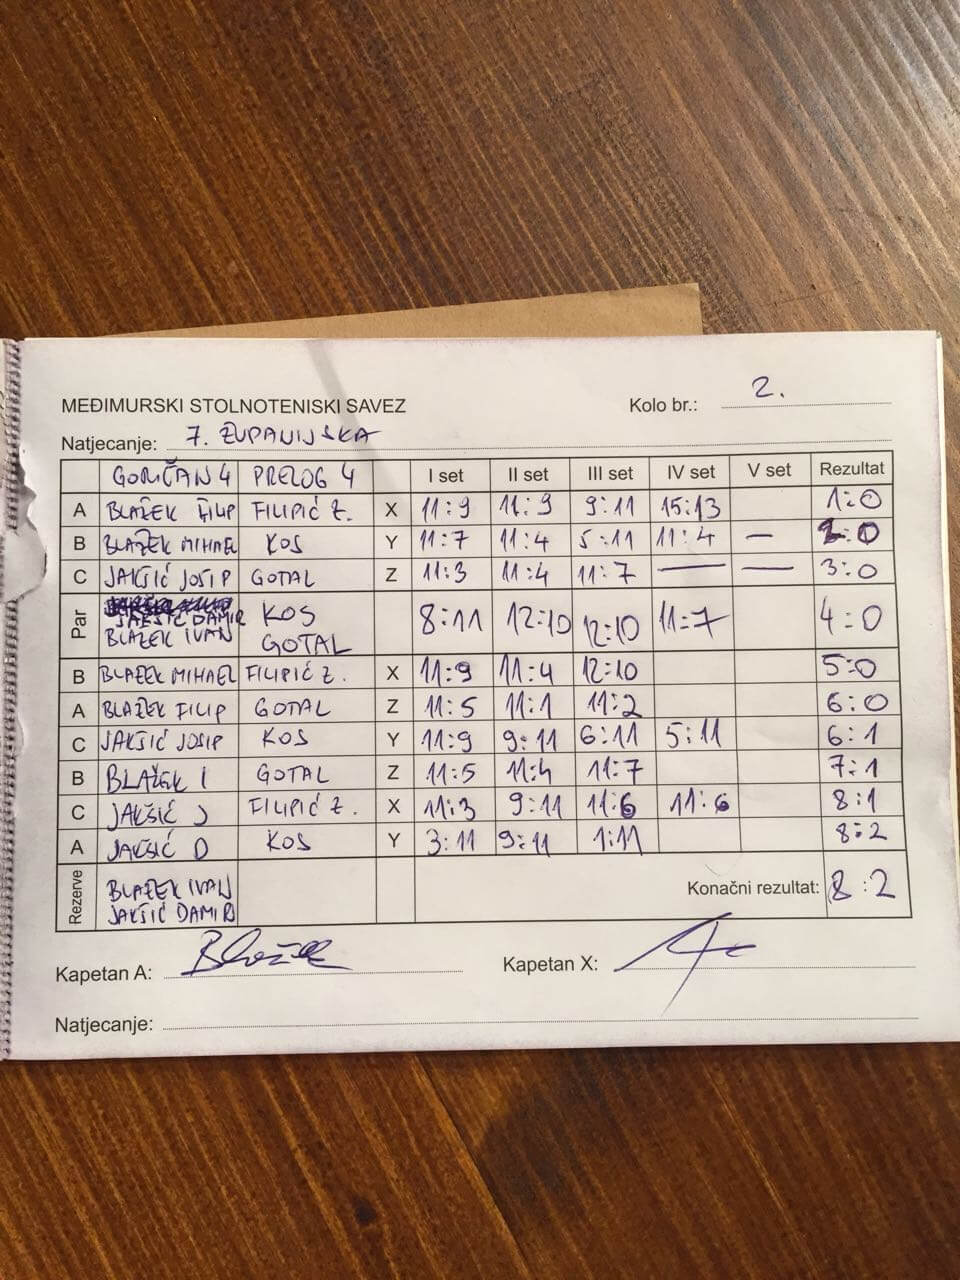 MEĐIMURSKI STOLNOTENISKI SAVEZ Kolo br.: 2.
Natjecanje: 7. ŽUPANIJSKA
GORIČAN 4 PRELOG 4 I set II set III set IV set V set Rezultat
A BLAŽEK FILIP FILIPIĆ Z. X 11:9 11:9 9:11 15:13 1:0
B BLAŽEK MIHAEL KOS Y 11:7 11:4 5:11 11:4 — 2:0
C JAKŠIĆ JOSIP GOTAL Z 11:3 11:4 11:7 — — 3:0
Par JAKŠIĆ DAMIR KOS 8:11 12:10 12:10 11:7 4:0
BLAŽEK IVAN GOTAL
B BLAŽEK MIHAEL FILIPIĆ Z. X 11:9 11:4 12:10 5:0
A BLAŽEK FILIP GOTAL Z 11:5 11:1 11:2 6:0
C JAKŠIĆ JOSIP KOS Y 11:9 9:11 6:11 5:11 6:1
B BLAŽEK I GOTAL Z 11:5 11:4 11:7 7:1
C JAKŠIĆ J FILIPIĆ Z. X 11:3 9:11 11:6 11:6 8:1
A JAKŠIĆ D KOS Y 3:11 9:11 1:11 8:2
Rezerve BLAŽEK IVAN Konačni rezultat: 8:2
JAKŠIĆ DAMIR
Kapetan A: Blažek Kapetan X:
Natjecanje: